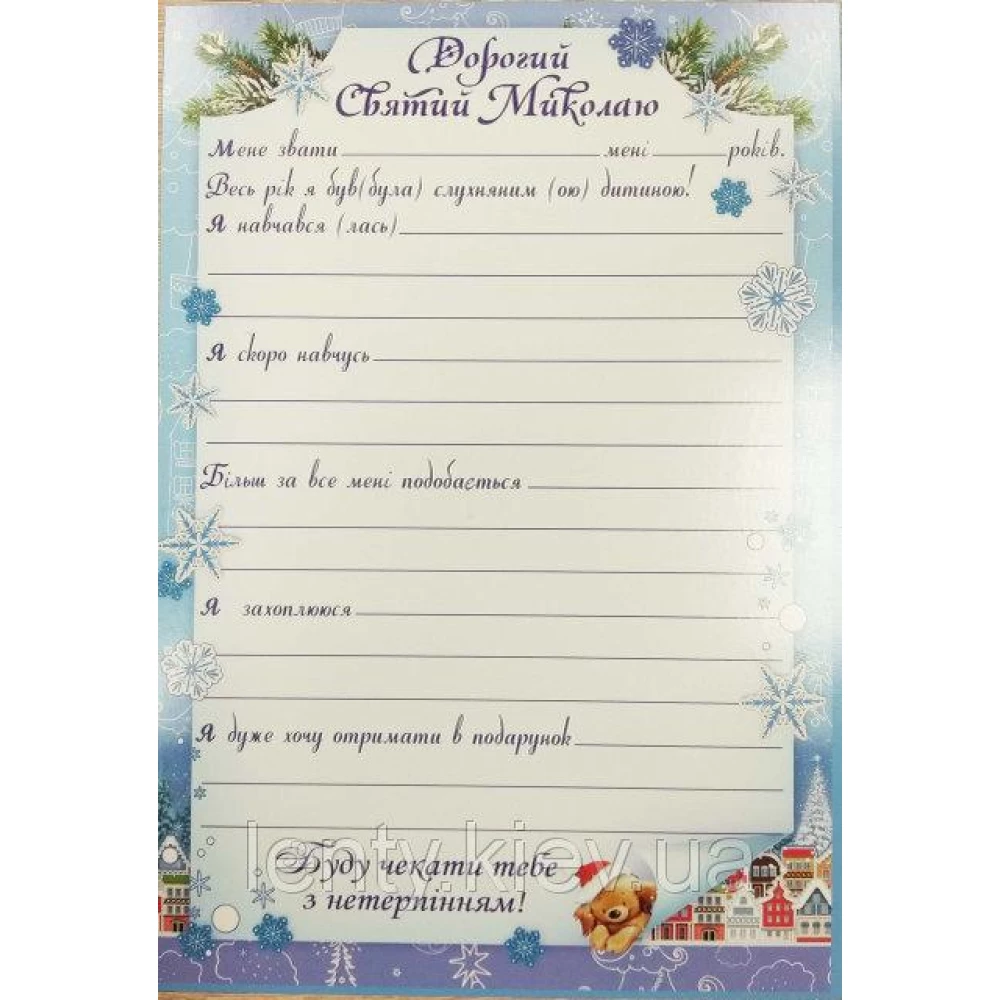 Дорогий
Святий Миколаю
Мене звати мені років.
Весь рік я був(була) слухняним (ою) дитиною!
Я навчався (лась)
Я скоро навчусь
Більш за все мені подобається
Я захоплююся
Я дуже хочу отримати в подарунок
Буду чекати тебе
з нетерпінням!
lenty.kiev.ua